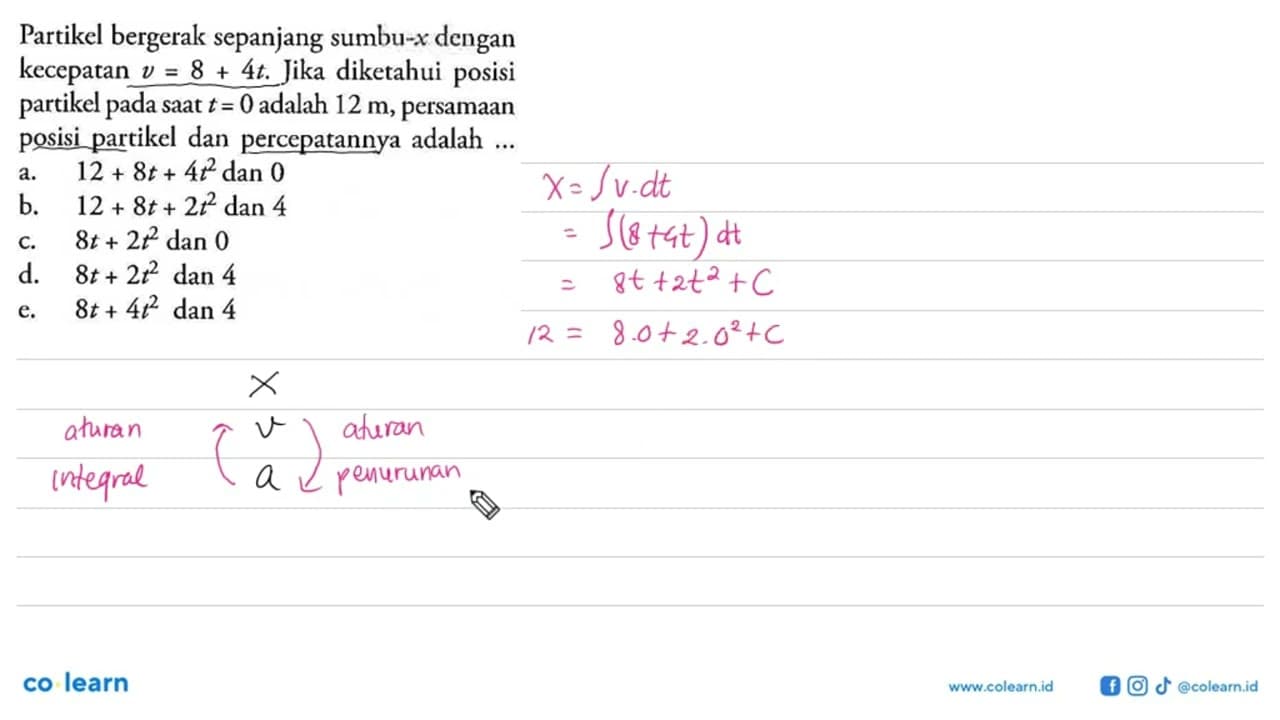 Partikel bergerak sepanjang sumbu-x dengan
kecepatan v = 8 + 4t. Jika diketahui posisi
partikel pada saat t = 0 adalah 12 m, persamaan
posisi partikel dan percepatannya adalah ...
a. 12 + 8t + 4t² dan 0
b. 12 + 8t + 2t² dan 4
c. 8t + 2t² dan 0
d. 8t + 2t² dan 4
e. 8t + 4t² dan 4
x = ∫ v . dt
= ∫(8 + 4t) dt
= 8t + 2t² + C
12 = 8.0 + 2.0² + C
x
aturan v aturan
integral a penurunan
co learn
www.colearn.id @colearn.id